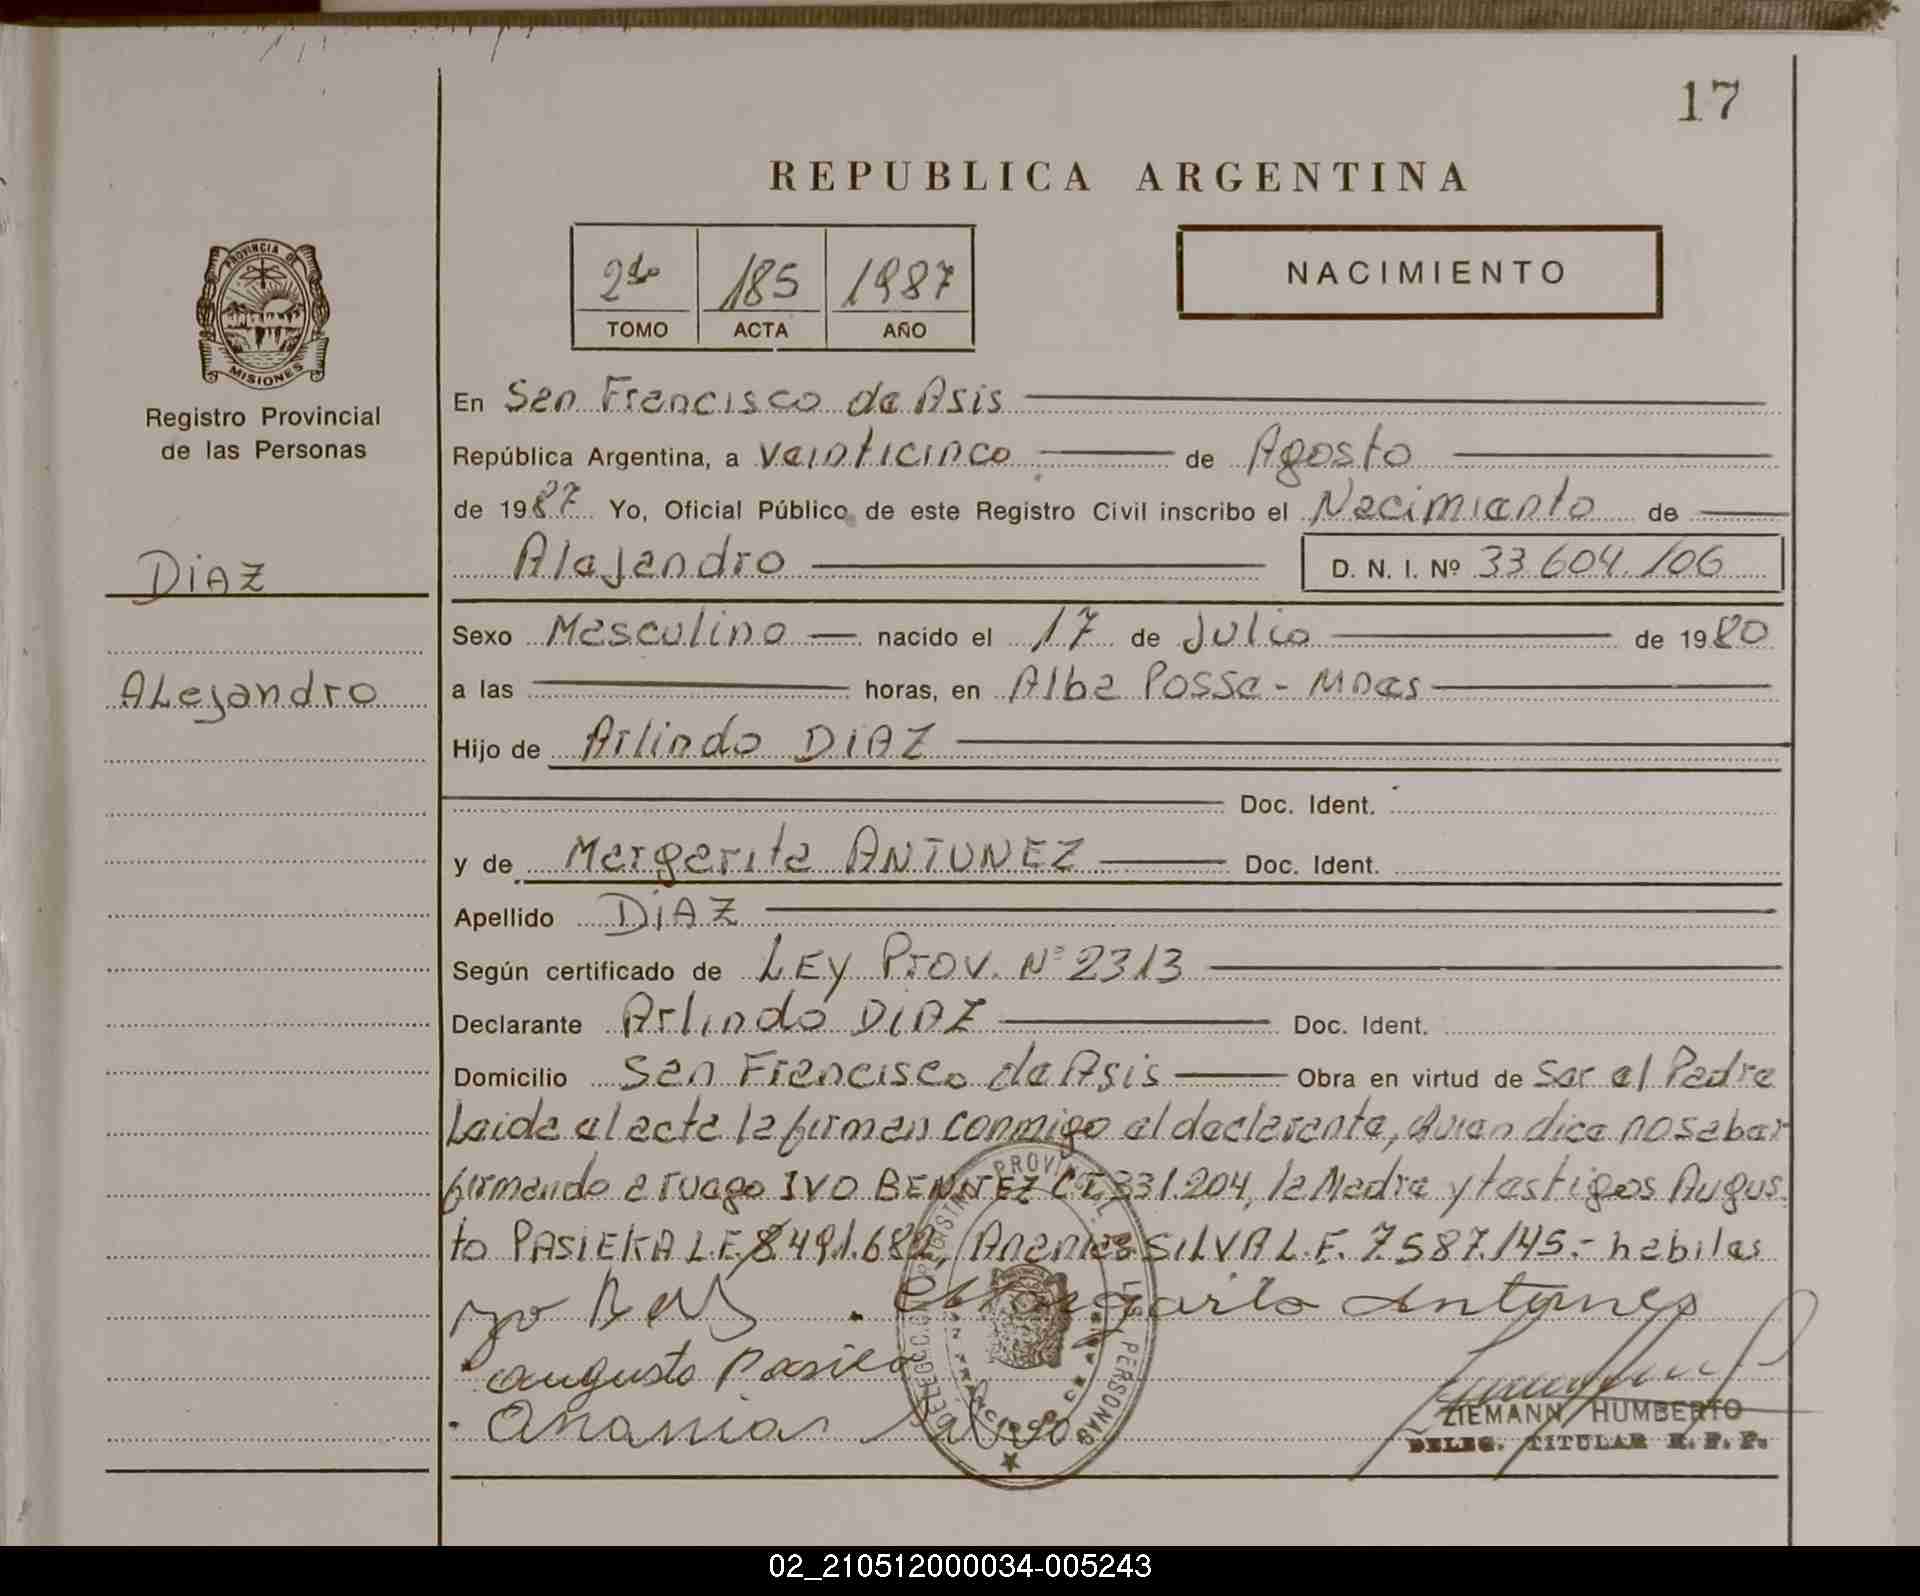 17
REPUBLICA ARGENTINA
PROVINCIA DE
MISIONES
Registro Provincial
de las Personas
2do 185 1987
TOMO ACTA AÑO
NACIMIENTO
En San Francisco de Asis
República Argentina, a veinticinco de Agosto
de 1987 Yo, Oficial Público de este Registro Civil inscribo el Nacimiento de
DIAZ
Alejandro D. N. I. Nº 33.604.106
Sexo Masculino nacido el 17 de Julio de 1980
Alejandro
a las horas, en Alba Posse - Mnes
Hijo de Arlindo DIAZ
Doc. Ident.
y de Margarita ANTUNEZ Doc. Ident.
Apellido DIAZ
Según certificado de LEY Prov. Nº 2313
Declarante Arlindo DIAZ Doc. Ident.
Domicilio San Francisco de Asis Obra en virtud de Ser el Padre
Leida el acta la firman conmigo el declarante, quien dice no saber
firmando a ruego IVO BENITEZ C.I. 331.204, la Madre y testigos Augus
to PASIEKA L.E. 8491.682, Ananias SILVA L.E. 7587.145.- habiles
Margarita Antunes
Augusto
Ananias Silva
ZIEMANN HUMBERTO
DELEG. TITULAR R. P. P.
02_210512000034-005243